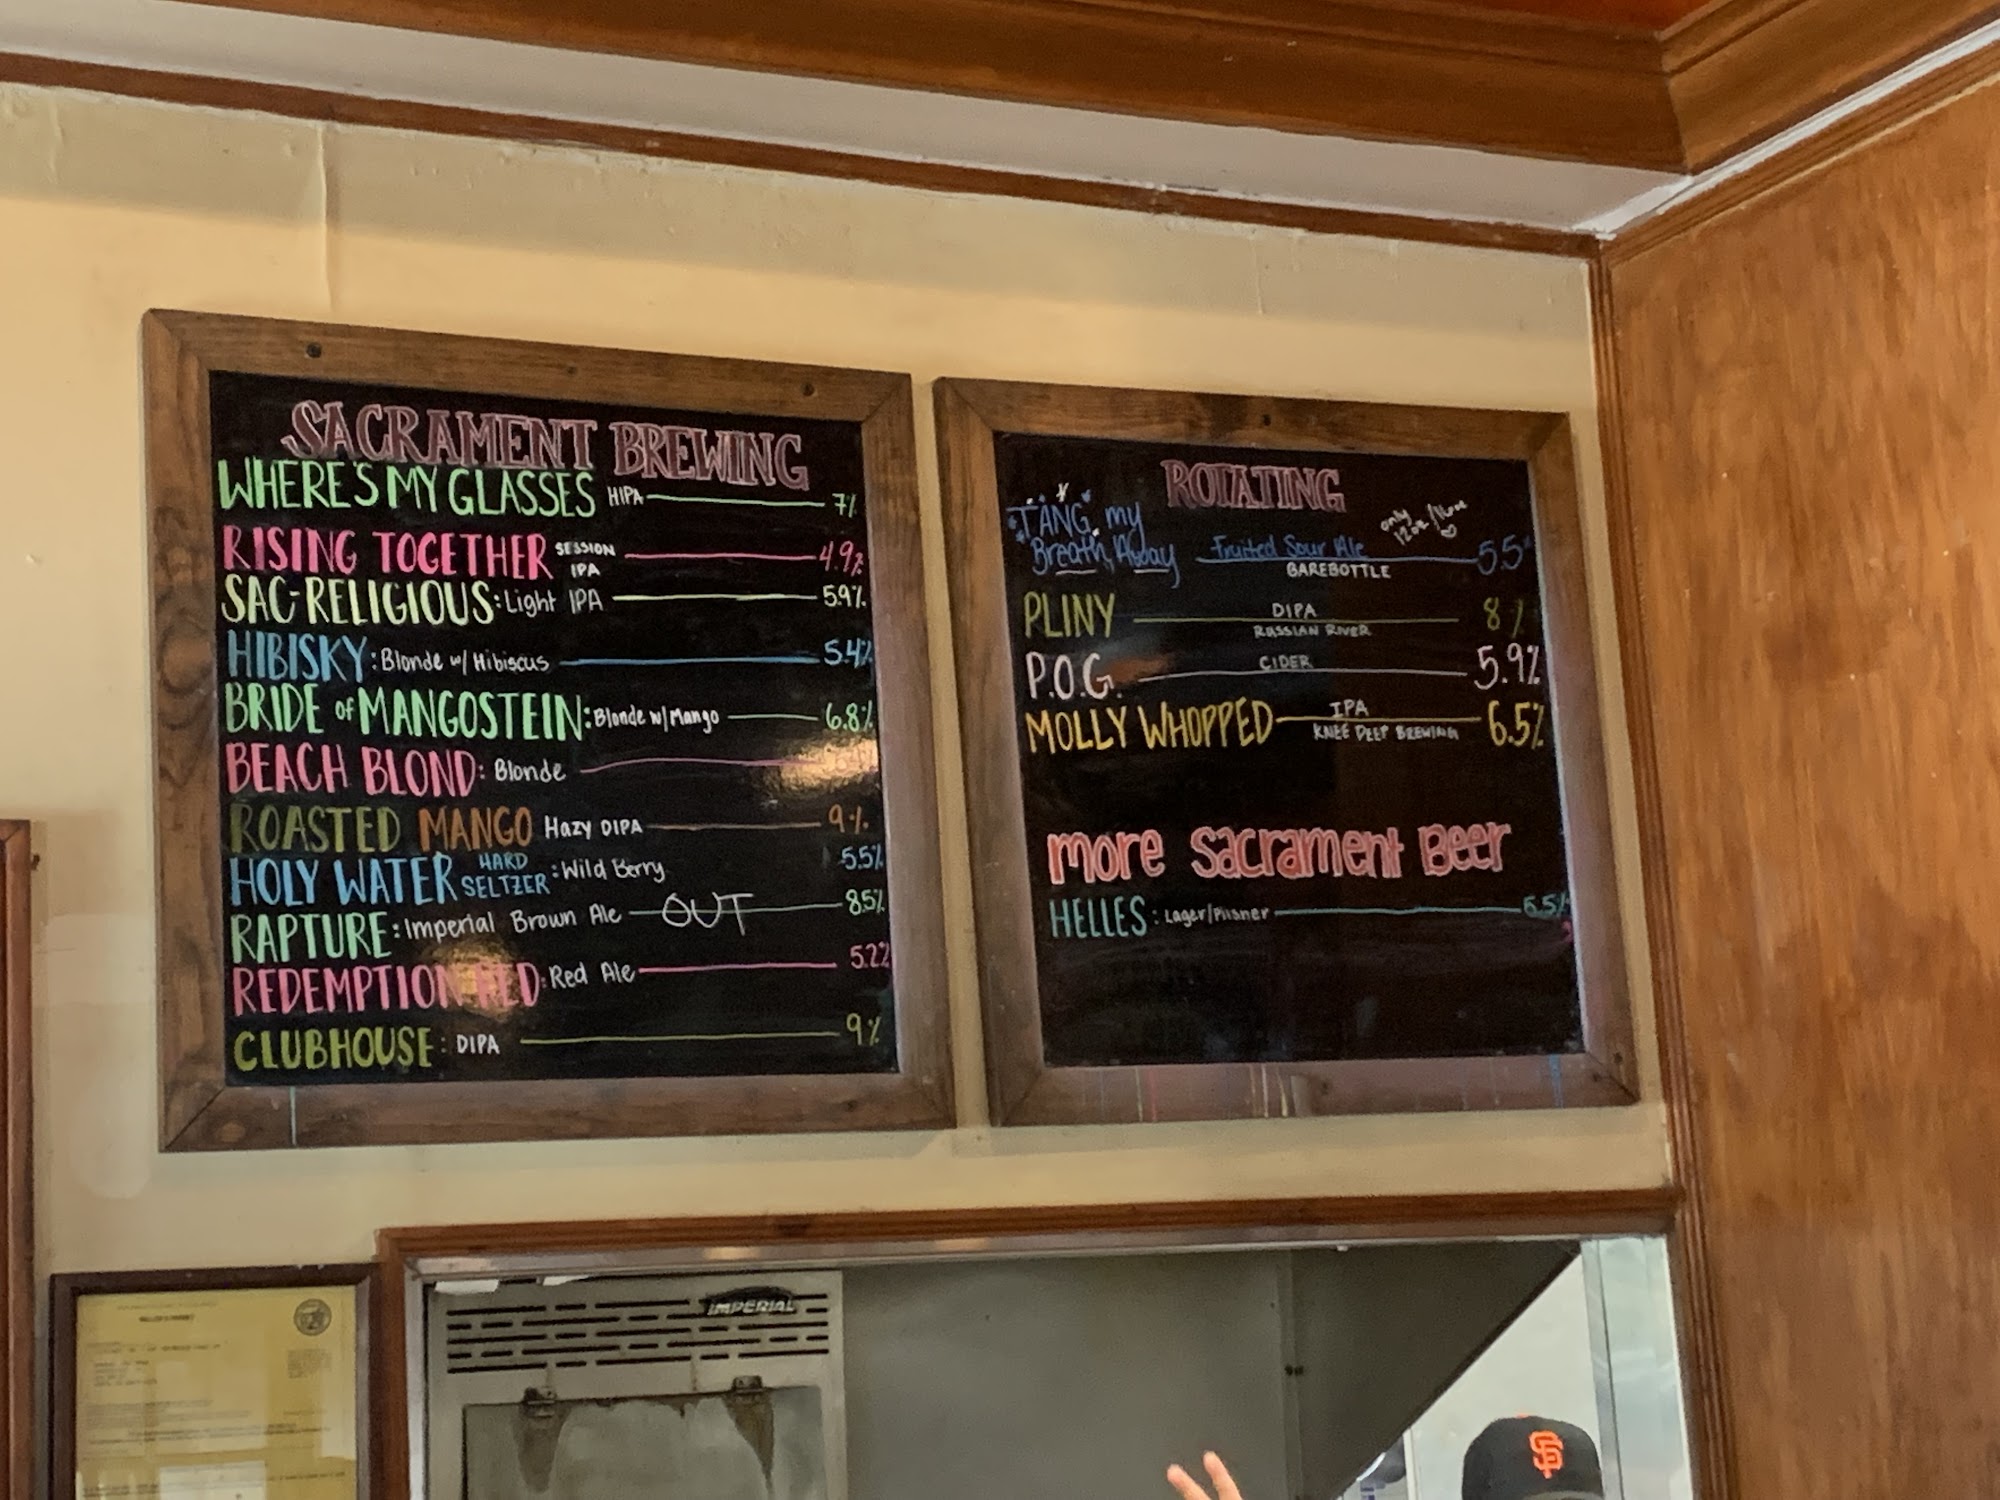 SACRAMENT BREWING
WHERE'S MY GLASSES HIPA 7%
RISING TOGETHER SESSION IPA 4.9%
SAC-RELIGIOUS: Light IPA 5.9%
HIBISKY: Blonde w/ Hibiscus 5.4%
BRIDE of MANGOSTEIN: Blonde w/ Mango 6.8%
BEACH BLOND: Blonde
ROASTED MANGO Hazy DIPA 9%
HOLY WATER HARD SELTZER: Wild Berry 5.5%
RAPTURE: Imperial Brown Ale OUT 8.5%
REDEMPTION RED: Red Ale 5.2%
CLUBHOUSE: DIPA 9%
ROTATING
TANG my
Breath Away Fruited Sour Ale only 12oz/16oz 5.5%
BAREBOTTLE
PLINY DIPA 8%
RUSSIAN RIVER
P.O.G. CIDER 5.9%
MOLLY WHOPPED IPA 6.5%
KNEE DEEP BREWING
more Sacrament Beer
HELLES: Lager/Pilsner
IMPERIAL
SF